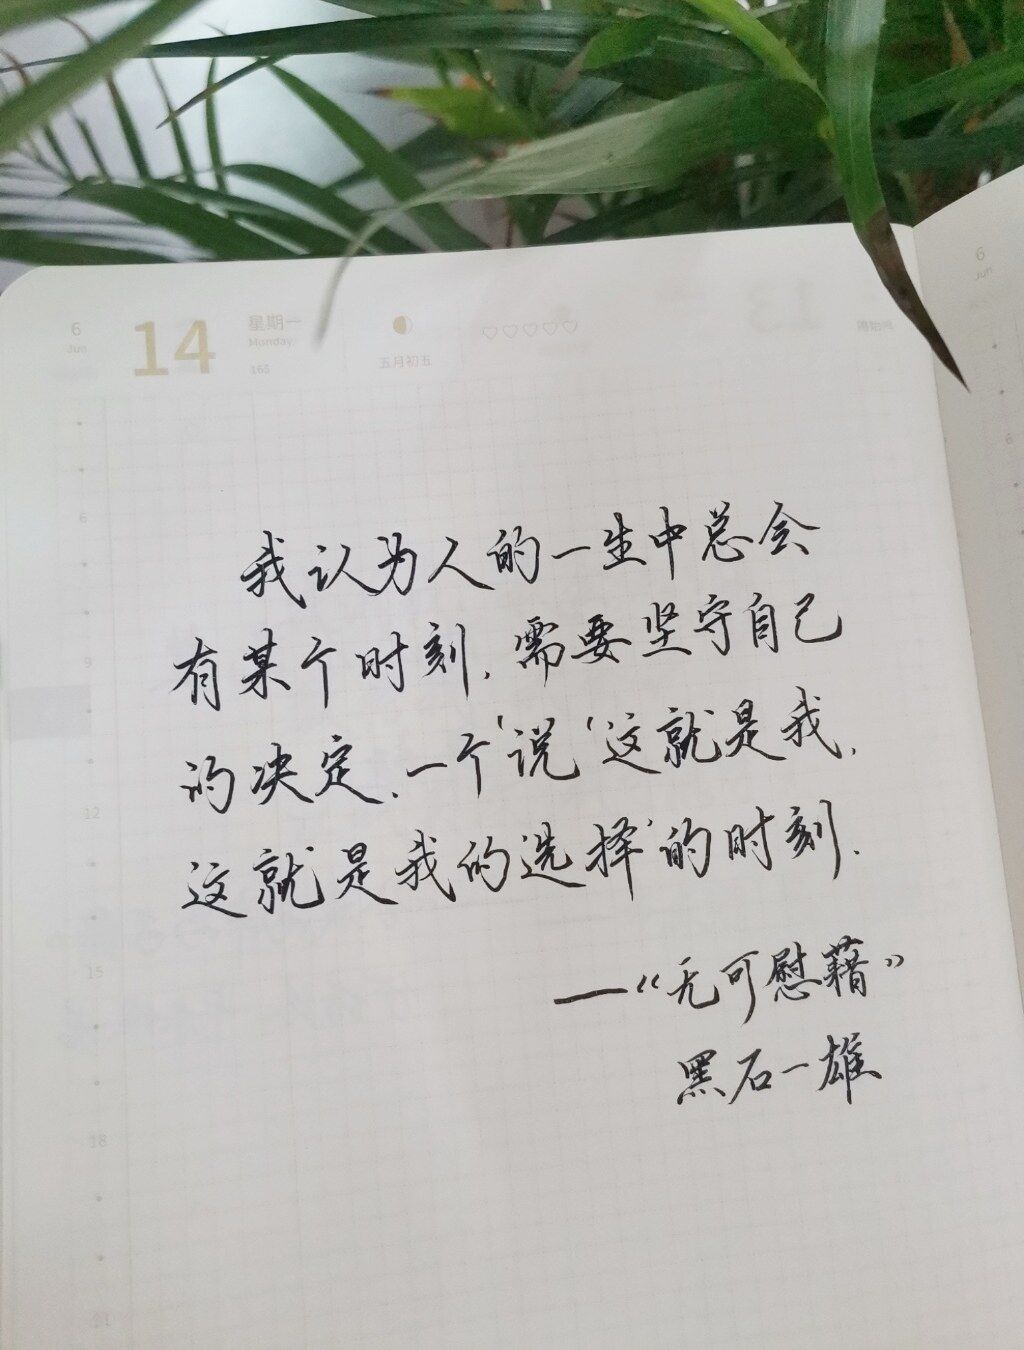 6
Jun
14
星期一
Monday
165
五月初五
6
Jun
6
9
12
15
18
21
我认为人的一生中总会
有某个时刻,需要坚守自己
的决定,一个'说'这就是我,
这就是我的选择'的时刻.
—“无可慰藉”
黑石一雄